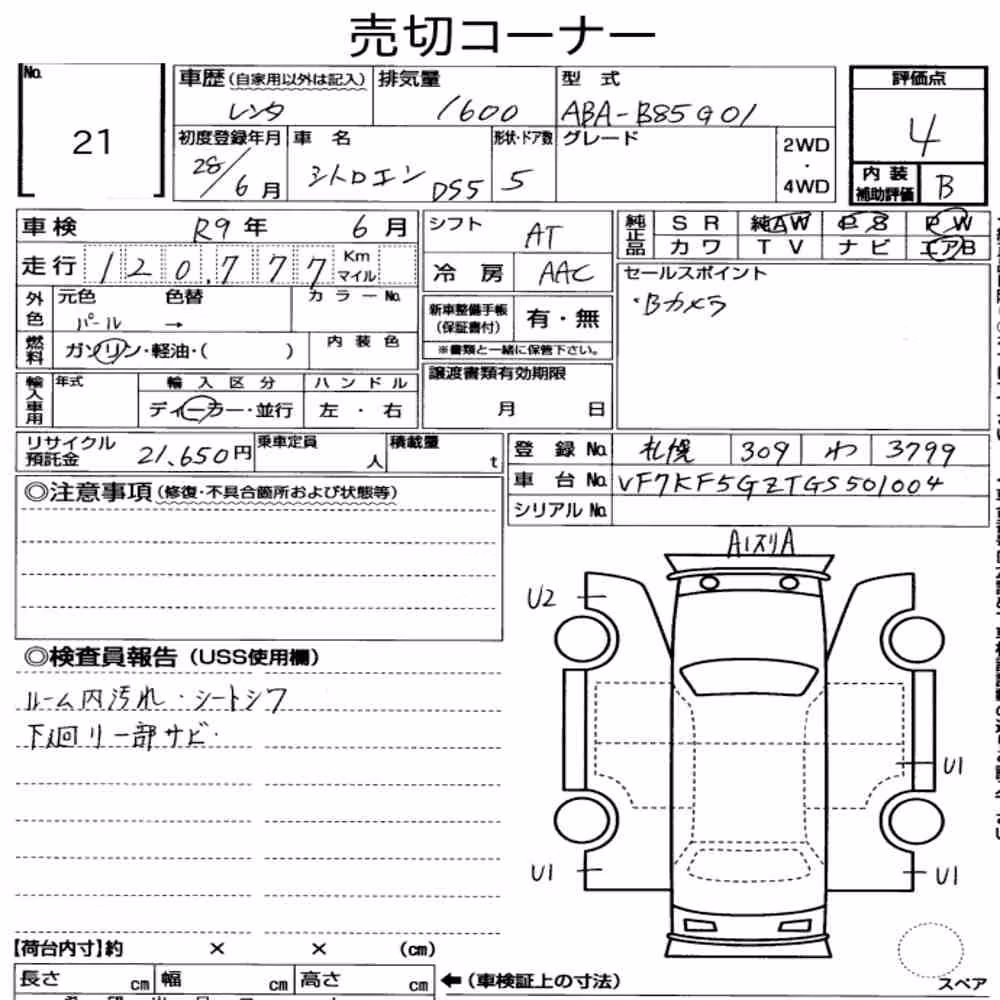 売切コーナー
No.
21
車歴(自家用以外は記入)
レンタ
排気量
1600
型 式
ABA-B85G01
評価点
4
初度登録年月
28/6月
車 名
シトロエン DS5
形状・ドア数
5
グレード
2WD
・
4WD
内装
補助評価
B
車検 R9年 6月
走行 120,777 Km
マイル
外色
元色 色替
パール →
カラーNo.
燃料
ガソリン・軽油・( )
内 装 色
輸入車用
年式
輸 入 区 分
ディーラー・並行
ハ ン ド ル
左 ・ 右
シフト
AT
冷 房
AAC
新車整備手帳
(保証書付)
有・無
※書類と一緒に保管下さい。
譲渡書類有効期限
月 日
純正品
S R 純AW P S P W
カ ワ T V ナ ビ エアB
セールスポイント
・Bカメラ
リサイクル
預託金
21.650円
乗車定員
人
積載量
t
登 録 No. 札幌 309 わ 3799
車 台 No. VF7KF5GZTGS501004
シリアル No.
◎注意事項(修復・不具合箇所および状態等)
◎検査員報告(USS使用欄)
ルーム内汚れ・シートシワ
下廻り一部サビ・
A1スリA
U2
U1
U1
U1
【荷台内寸】約 × × (cm)
長さ cm 幅 cm 高さ cm
←(車検証上の寸法)
スペア